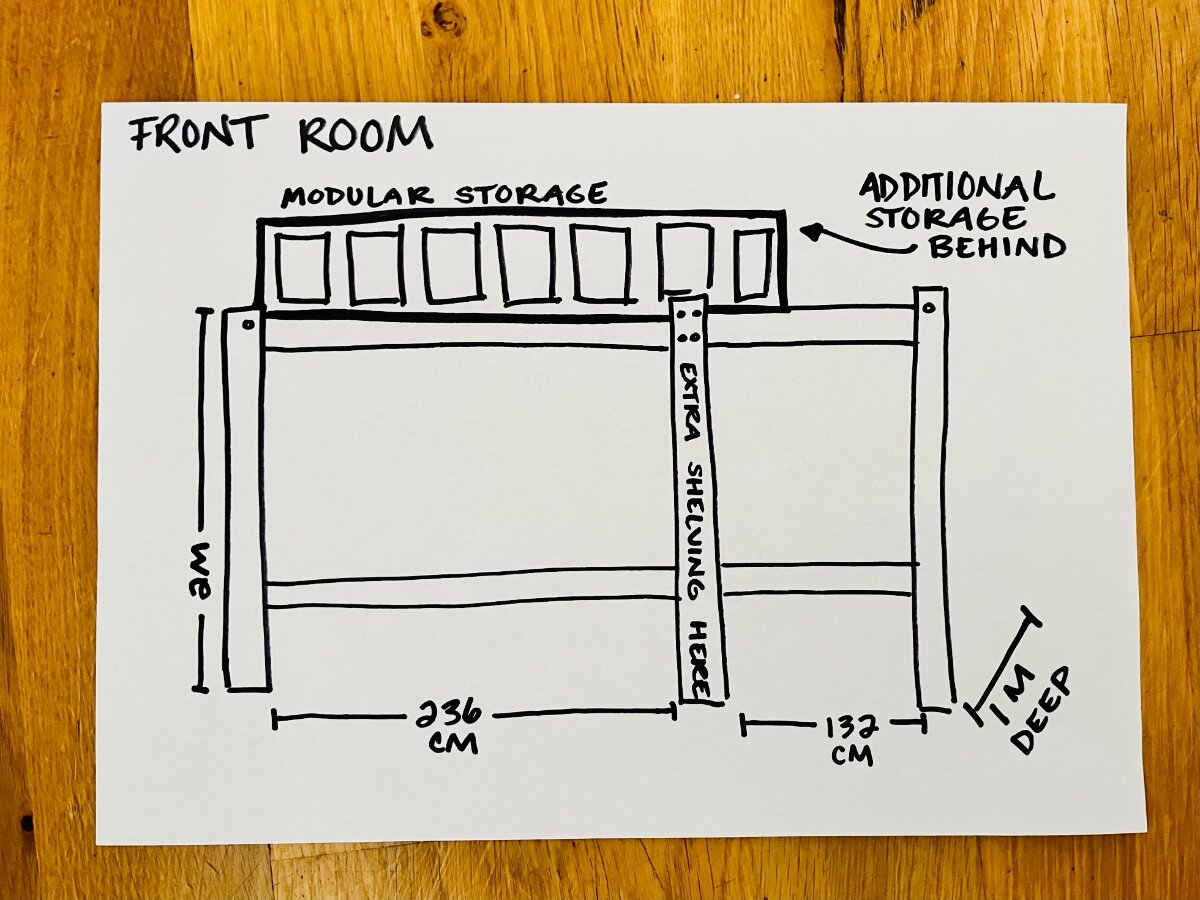 FRONT ROOM
MODULAR STORAGE
ADDITIONAL
STORAGE
BEHIND
EXTRA SHELVING HERE
2M
236
CM
132
CM
1M
DEEP